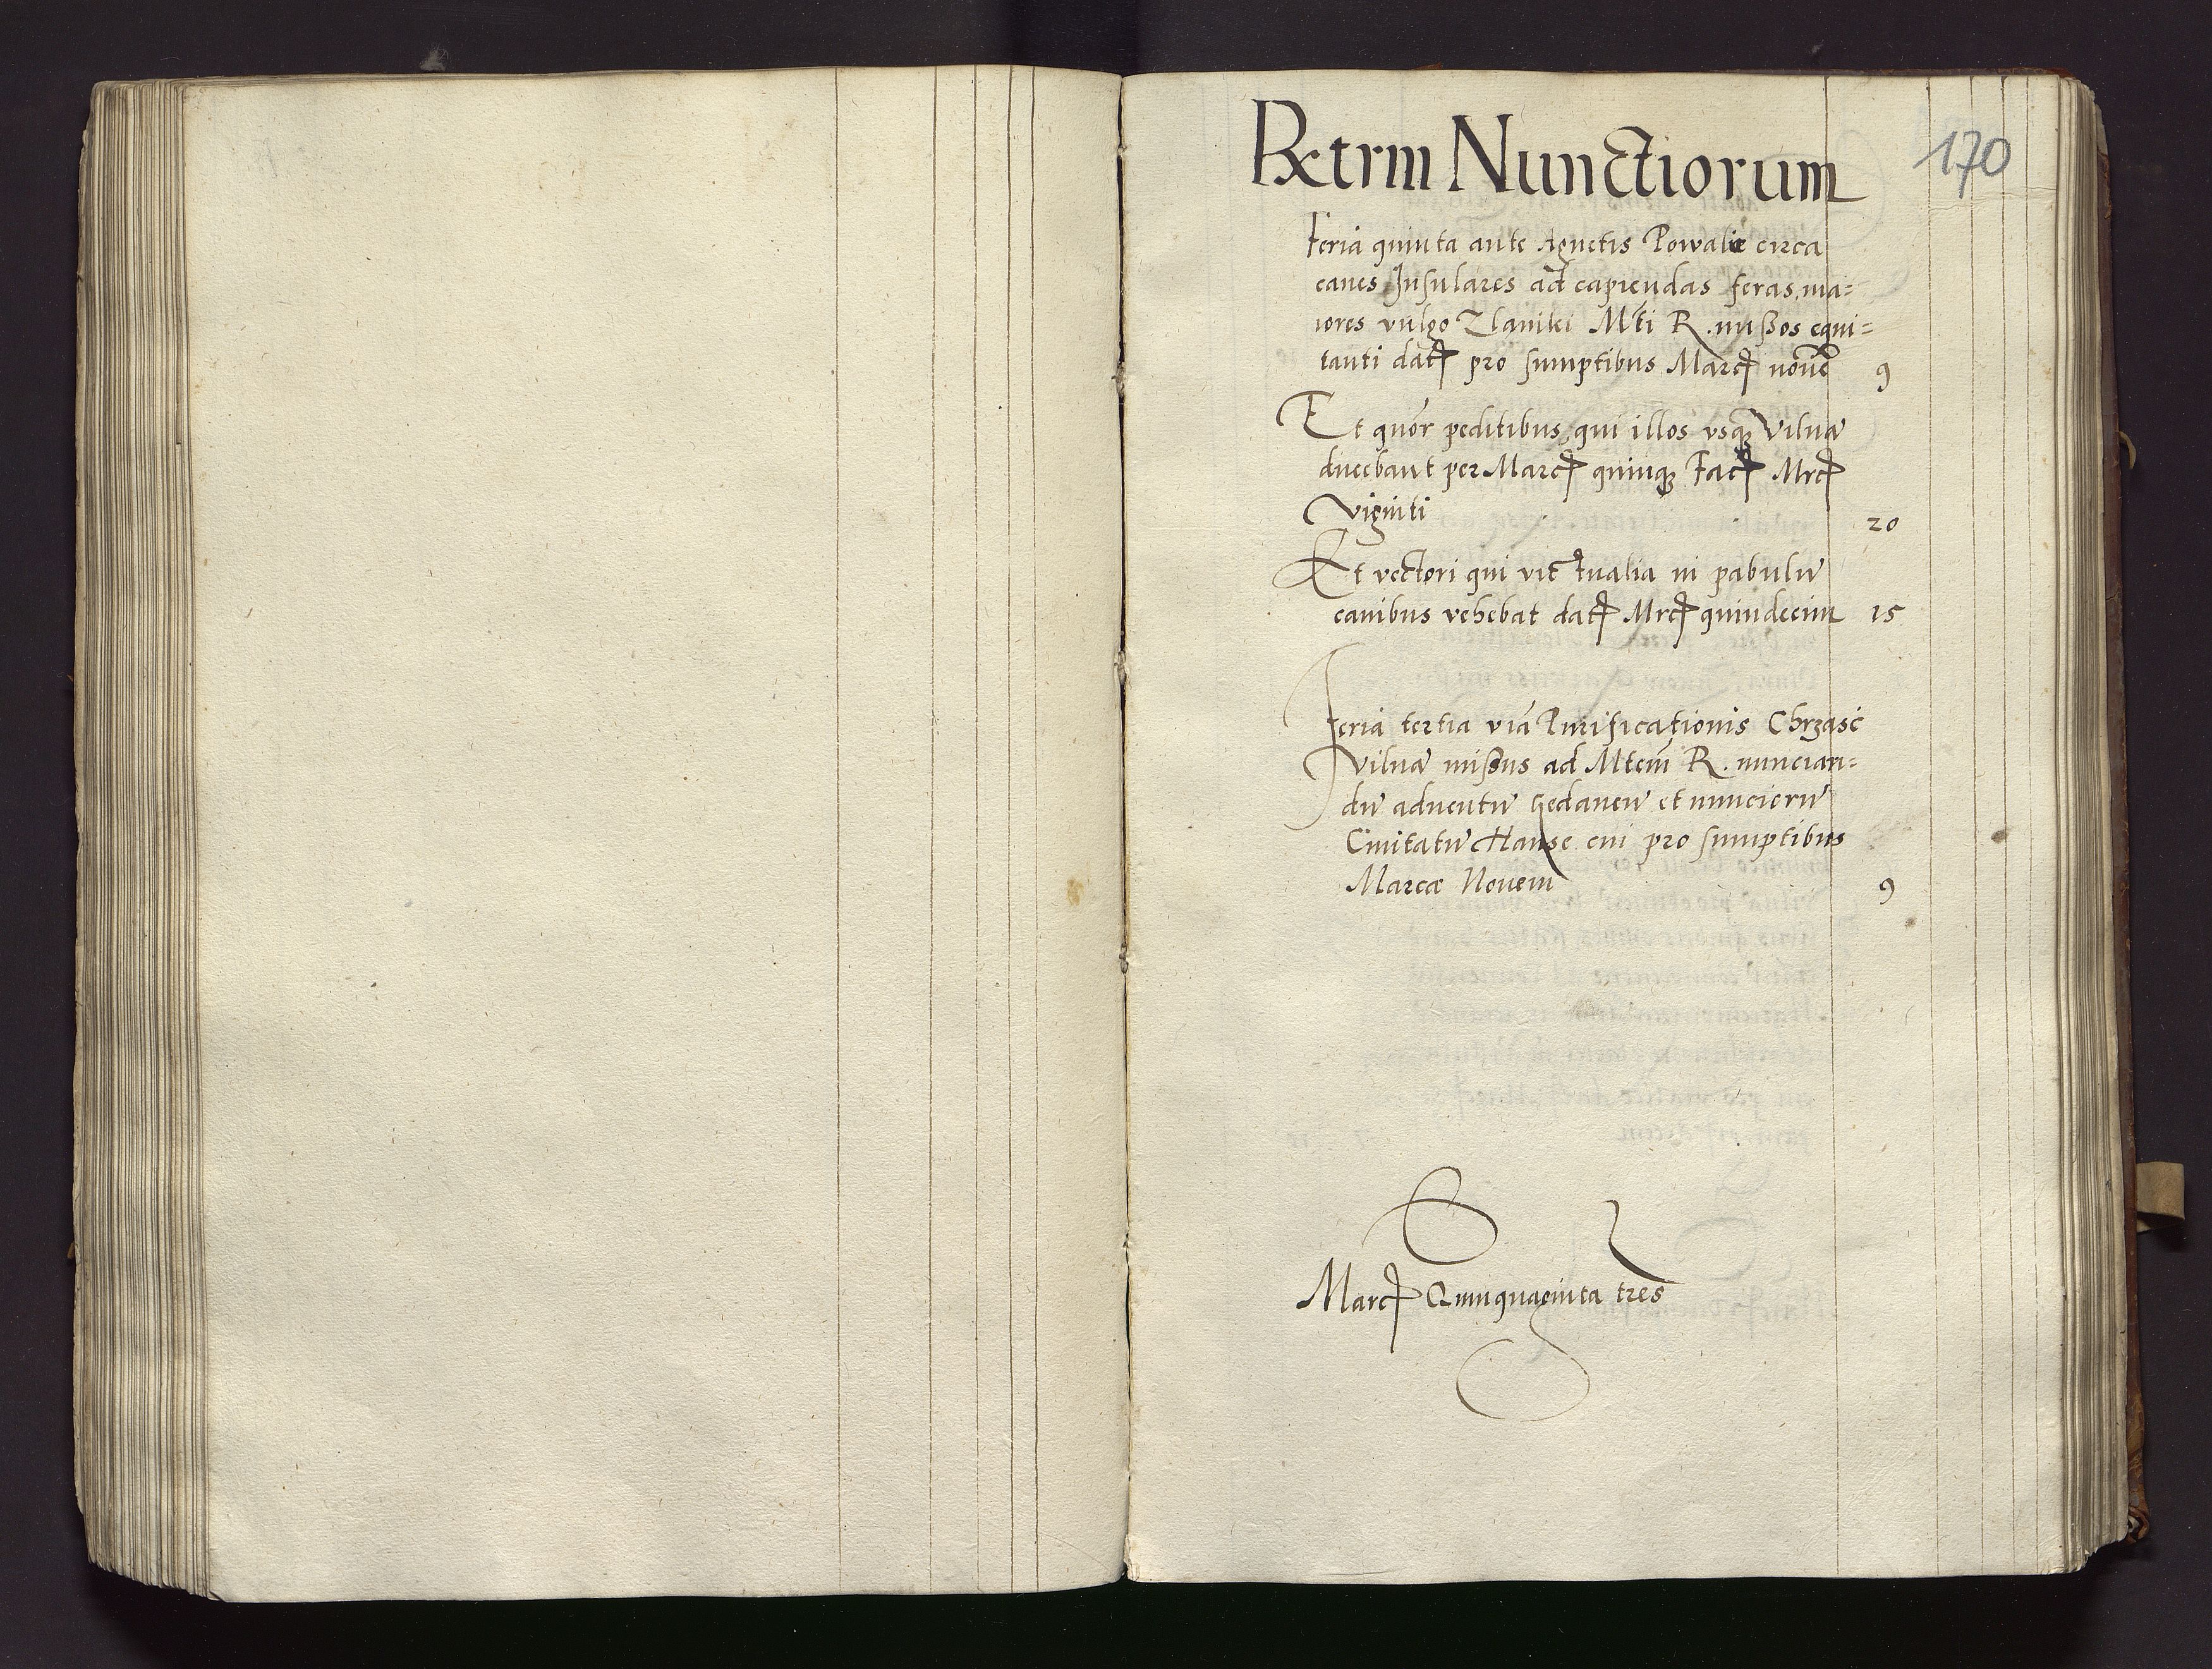 170
Rxtrm Nunctiorum
Feria quinta ante Agnetis Powalie circa
canes Insulares ad capiendas feras, ma=
iores vulgo Zlaniki Mti R. mißos equi=
tanti dat pro sumptibus Marc novē 9
Et quōr peditibus qui illos vsq Vilnā
ducebant per Marc quinq Fac Mrc
Viginti 20
Et vectori qui victualia in pabulū
canibus vehebat dat Mrc quindecim 15
Feria tertia via Purificationis Chrząsć
Vilnā mißus ad Mtem R. nuncian=
dū aduentū Gedanen̄ et nunciorū
Ciuitatū Hanse cui pro sumptibus
Marcæ Nouem 9
Marc Quinquaginta tres